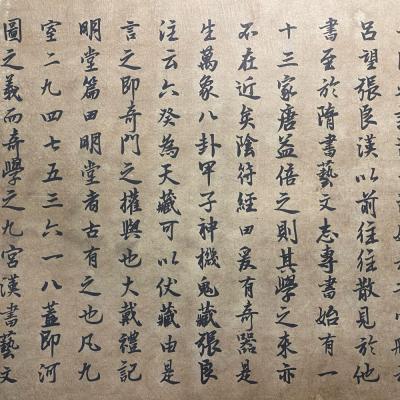 呂望張良漢以前往往散見於他
書至於隋書藝文志專書始有一
十三家唐益倍之則其學之來亦
不在近矣陰符經田爰有奇器是
生萬象八卦甲子神機鬼藏張良
注云六癸為天藏可以伏藏由是
言之即奇門之權輿也大戴禮記
明堂篇田明堂者古有之也凡九
室二九四七五三六一八蓋即河
圖之義而奇學之九宮漢書藝文